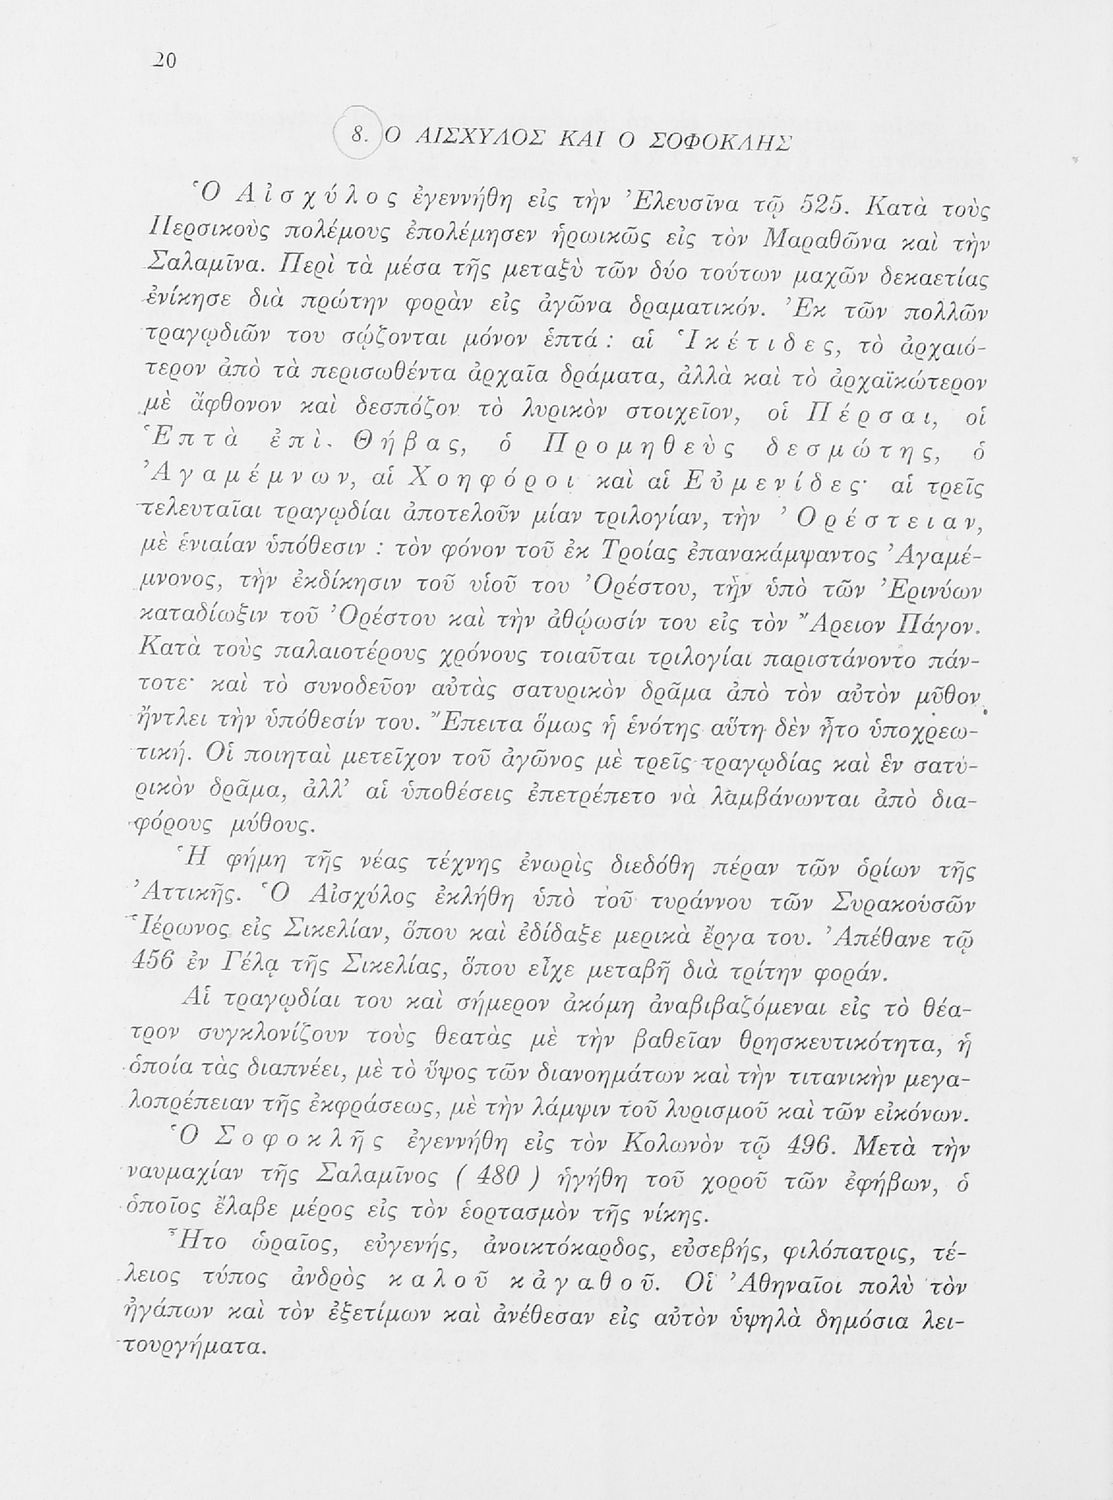 20
8. Ο ΑΙΣΧΥΛΟΣ ΚΑΙ Ο ΣΟΦΟΚΛΗΣ
Ὁ Αἰσχύλος ἐγεννήθη εἰς τὴν Ἐλευσῖνα τῷ 525. Κατὰ τοὺς
Περσικοὺς πολέμους ἐπολέμησεν ἡρωικῶς εἰς τὸν Μαραθῶνα καὶ τὴν
Σαλαμῖνα. Περὶ τὰ μέσα τῆς μεταξὺ τῶν δύο τούτων μαχῶν δεκαετίας
ἐνίκησε διὰ πρώτην φορὰν εἰς ἀγῶνα δραματικόν. Ἐκ τῶν πολλῶν
τραγῳδιῶν του σῴζονται μόνον ἑπτά : αἱ Ἱκέτιδες, τὸ ἀρχαιό-
τερον ἀπὸ τὰ περισωθέντα ἀρχαῖα δράματα, ἀλλὰ καὶ τὸ ἀρχαϊκώτερον
μὲ ἄφθονον καὶ δεσπόζον τὸ λυρικὸν στοιχεῖον, οἱ Πέρσαι, οἱ
Ἑπτὰ ἐπὶ Θήβας, ὁ Προμηθεὺς δεσμώτης, ὁ
Ἀγαμέμνων, αἱ Χοηφόροι καὶ αἱ Εὐμενίδες· αἱ τρεῖς
τελευταῖαι τραγῳδίαι ἀποτελοῦν μίαν τριλογίαν, τὴν Ὀρέστειαν,
μὲ ἑνιαίαν ὑπόθεσιν : τὸν φόνον τοῦ ἐκ Τροίας ἐπανακάμψαντος Ἀγαμέ-
μνονος, τὴν ἐκδίκησιν τοῦ υἱοῦ του Ὀρέστου, τὴν ὑπὸ τῶν Ἐρινύων
καταδίωξιν τοῦ Ὀρέστου καὶ τὴν ἀθῴωσίν του εἰς τὸν Ἄρειον Πάγον.
Κατὰ τοὺς παλαιοτέρους χρόνους τοιαῦται τριλογίαι παριστάνοντο πάν-
τοτε· καὶ τὸ συνοδεῦον αὐτὰς σατυρικὸν δρᾶμα ἀπὸ τὸν αὐτὸν μῦθον
ἤντλει τὴν ὑπόθεσίν του. Ἔπειτα ὅμως ἡ ἑνότης αὕτη δὲν ἦτο ὑποχρεω-
τική. Οἱ ποιηταὶ μετεῖχον τοῦ ἀγῶνος μὲ τρεῖς τραγῳδίας καὶ ἓν σατυ-
ρικὸν δρᾶμα, ἀλλ' αἱ ὑποθέσεις ἐπετρέπετο νὰ λαμβάνωνται ἀπὸ δια-
φόρους μύθους.
Ἡ φήμη τῆς νέας τέχνης ἐνωρὶς διεδόθη πέραν τῶν ὁρίων τῆς
Ἀττικῆς. Ὁ Αἰσχύλος ἐκλήθη ὑπὸ τοῦ τυράννου τῶν Συρακουσῶν
Ἱέρωνος εἰς Σικελίαν, ὅπου καὶ ἐδίδαξε μερικὰ ἔργα του. Ἀπέθανε τῷ
456 ἐν Γέλᾳ τῆς Σικελίας, ὅπου εἶχε μεταβῆ διὰ τρίτην φοράν.
Αἱ τραγῳδίαι του καὶ σήμερον ἀκόμη ἀναβιβαζόμεναι εἰς τὸ θέα-
τρον συγκλονίζουν τοὺς θεατὰς μὲ τὴν βαθεῖαν θρησκευτικότητα, ἡ
ὁποία τὰς διαπνέει, μὲ τὸ ὕψος τῶν διανοημάτων καὶ τὴν τιτανικὴν μεγα-
λοπρέπειαν τῆς ἐκφράσεως, μὲ τὴν λάμψιν τοῦ λυρισμοῦ καὶ τῶν εἰκόνων.
Ὁ Σοφοκλῆς ἐγεννήθη εἰς τὸν Κολωνὸν τῷ 496. Μετὰ τὴν
ναυμαχίαν τῆς Σαλαμῖνος ( 480 ) ἡγήθη τοῦ χοροῦ τῶν ἐφήβων, ὁ
ὁποῖος ἔλαβε μέρος εἰς τὸν ἑορτασμὸν τῆς νίκης.
Ἦτο ὡραῖος, εὐγενής, ἀνοικτόκαρδος, εὐσεβής, φιλόπατρις, τέ-
λειος τύπος ἀνδρὸς καλοῦ κἀγαθοῦ. Οἱ Ἀθηναῖοι πολὺ τὸν
ἠγάπων καὶ τὸν ἐξετίμων καὶ ἀνέθεσαν εἰς αὐτὸν ὑψηλὰ δημόσια λει-
τουργήματα.